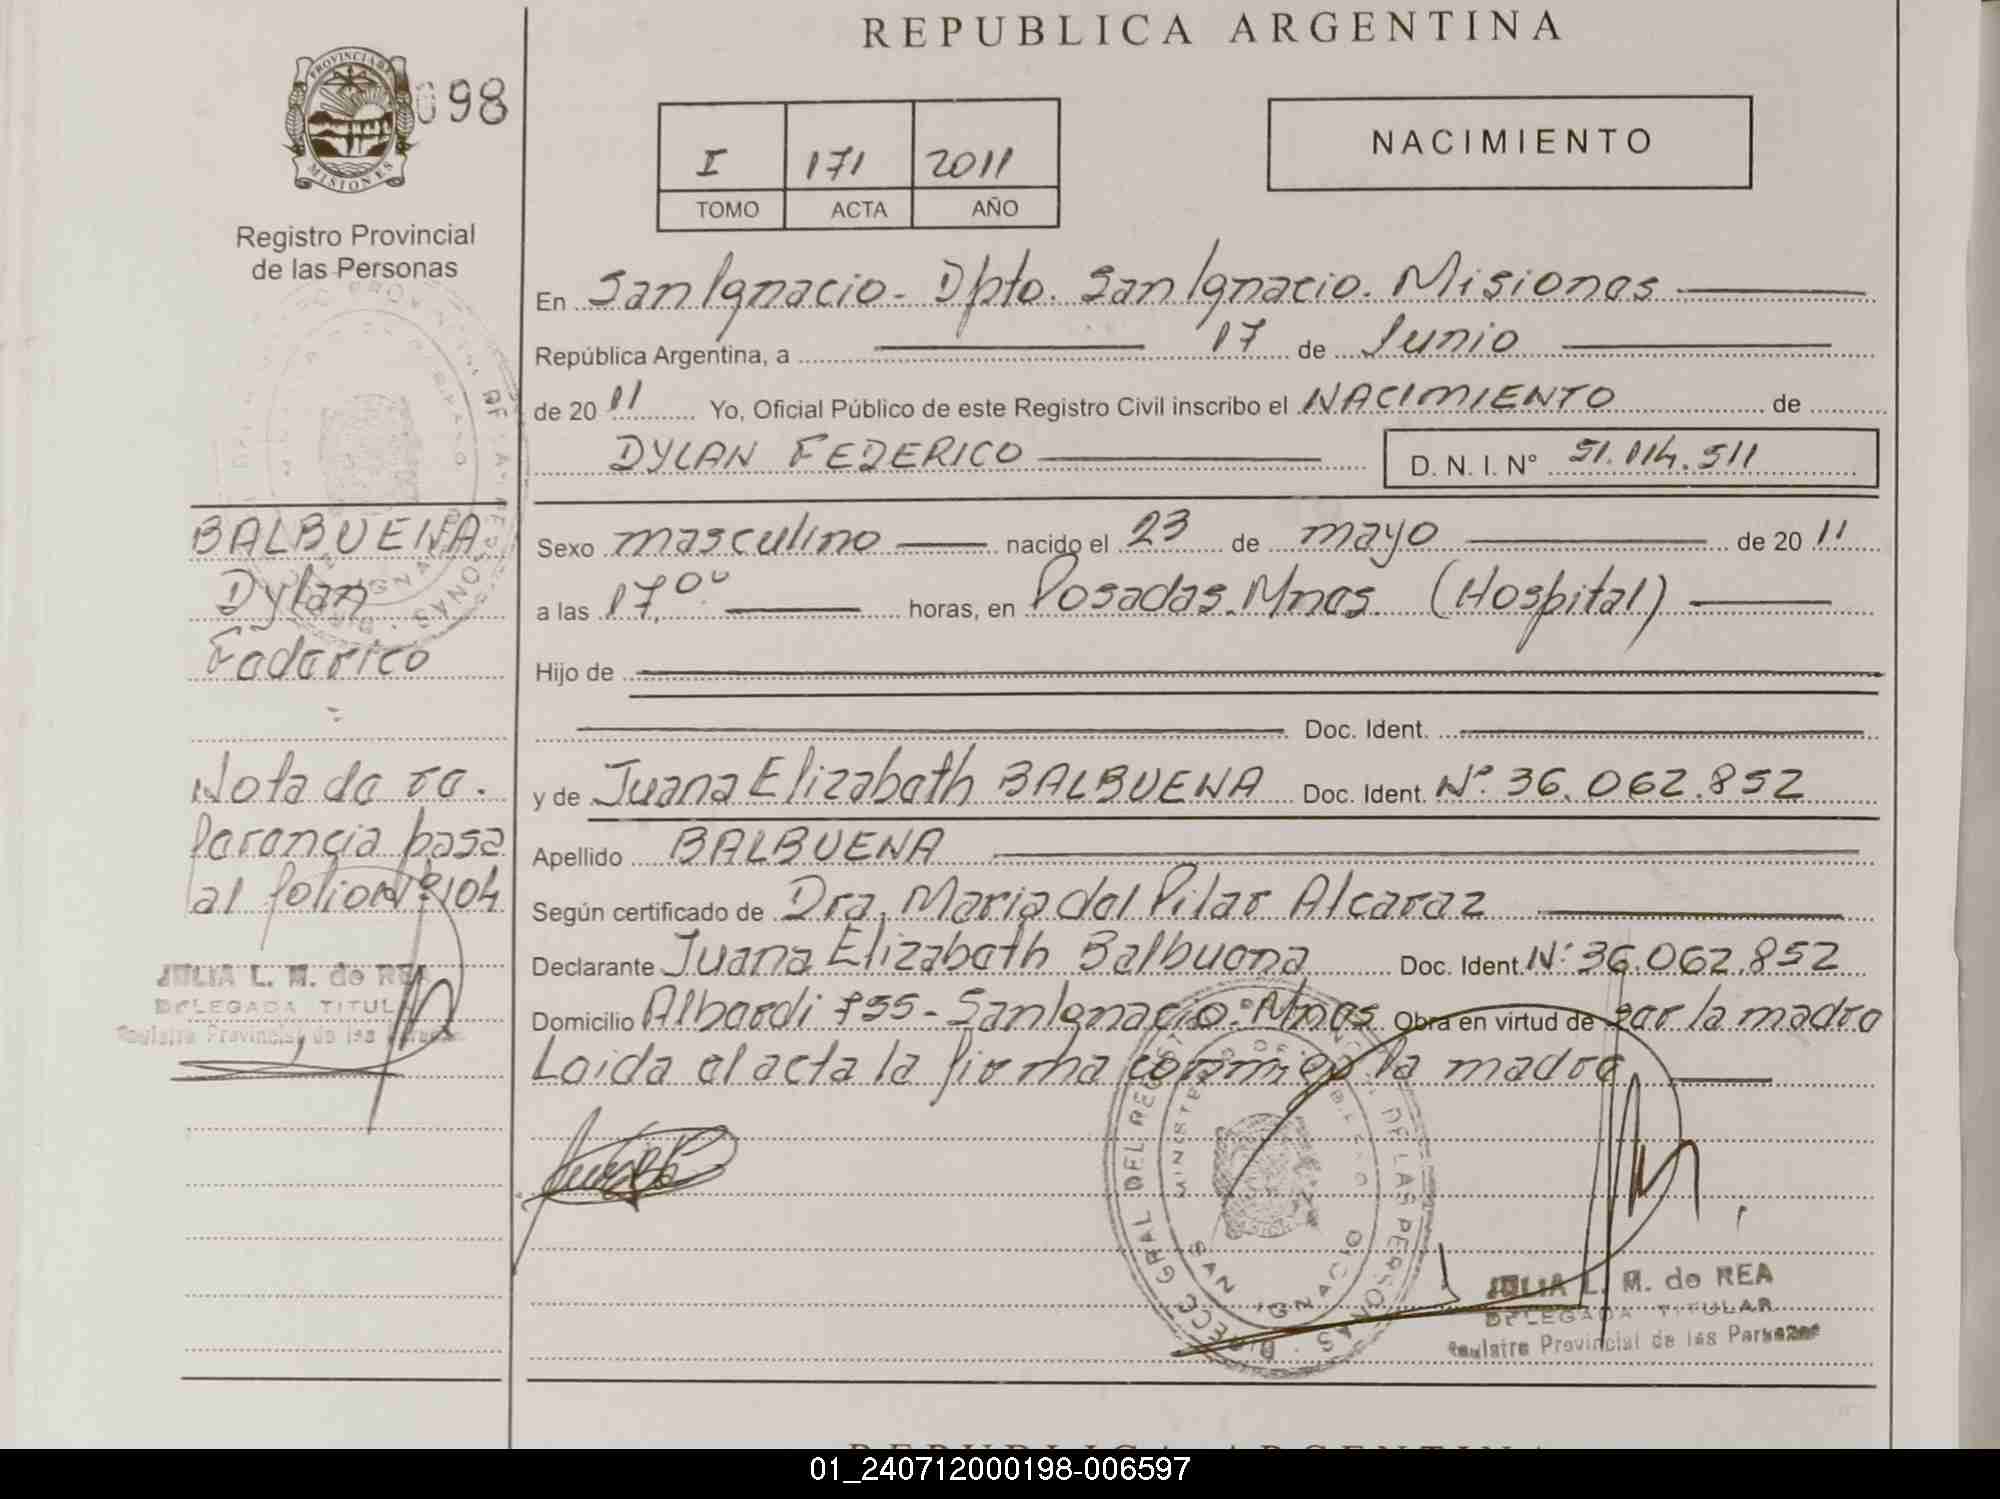 REPUBLICA ARGENTINA
PROVINCIA DE
MISIONES
098
Registro Provincial
de las Personas
I 171 2011
TOMO ACTA AÑO
NACIMIENTO
En San Ignacio - Dpto. San Ignacio. Misiones
República Argentina, a 17 de Junio
de 20 11 Yo, Oficial Público de este Registro Civil inscribo el NACIMIENTO de
DYLAN FEDERICO D. N. I. Nº 51.114.511
Sexo masculino nacido el 23 de mayo de 20 11
a las 17,00 horas, en Posadas. Mnes. (Hospital)
Hijo de
Doc. Ident.
y de Juana Elizabeth BALBUENA Doc. Ident. Nº 36.062.852
Apellido BALBUENA
Según certificado de Dra. Maria del Pilar Alcaraz
Declarante Juana Elizabeth Balbuena Doc. Ident. Nº 36.062.852
Domicilio San Ignacio. Mnes. Obra en virtud de ser la madre
Leida el acta la firma la madre
BALBUENA
Dylan
Federico
Nota de re.
ferencia pasa
al folio Nº 104
JULIA L. M. de REA
DELEGADA TITULAR
Registro Provincial de las Personas
DIRECC GRAL DEL REGISTRO DE LAS PERSONAS
SAN IGNACIO
JULIA L. M. de REA
DELEGADA TITULAR
Registro Provincial de las Personas
REPUBLICA ARGENTINA
01_240712000198-006597